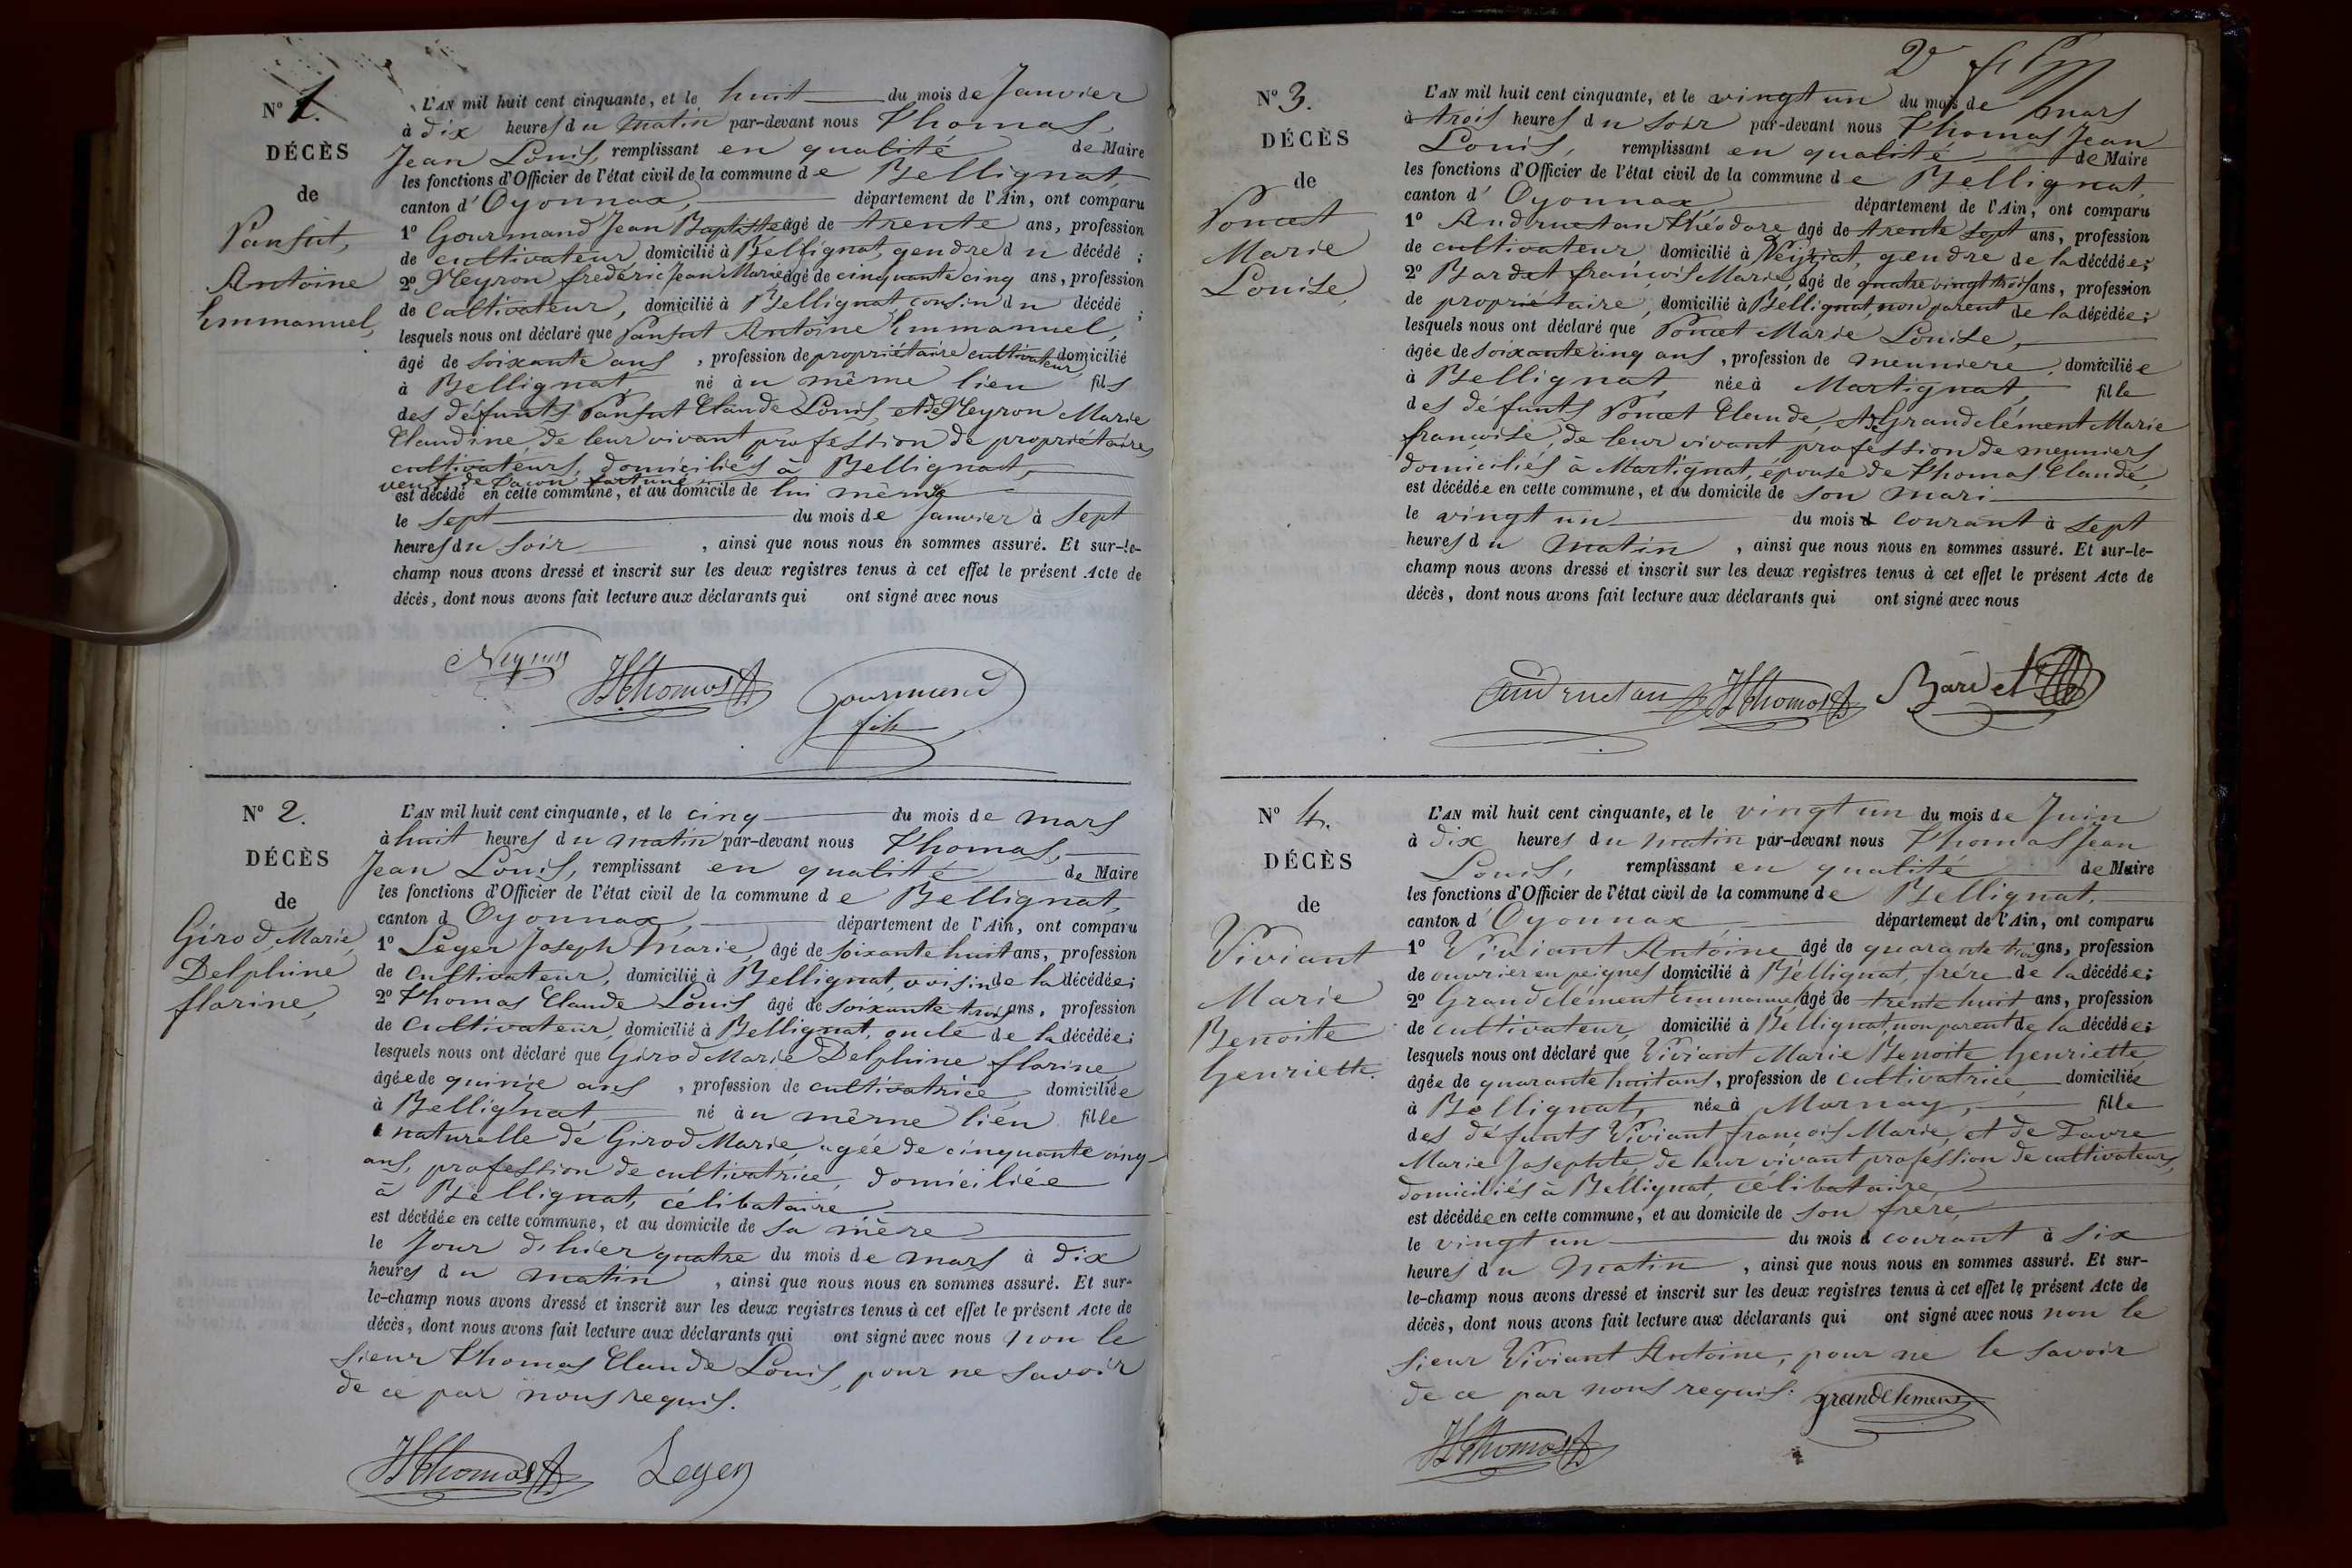 N° 1.
DÉCÈS
de
Pansut,
Antoine
Emmanuel,
L'AN mil huit cent cinquante, et le huit du mois de Janvier
à dix heures du matin par-devant nous Thomas,
Jean Louis, remplissant en qualité de Maire
les fonctions d'Officier de l'état civil de la commune de Bellignat,
canton d'Oyonnax, département de l'Ain, ont comparu
1° Gourmand Jean Baptiste âgé de trente ans, profession
de cultivateur, domicilié à Bellignat, gendre du décédé ;
2° Neyron frédéric Jean Marie âgé de cinquante cinq ans, profession
de cultivateur, domicilié à Bellignat cousin du décédé ;
lesquels nous ont déclaré que Pansut Antoine Emmanuel,
âgé de soixante ans, profession de propriétaire cultivateur domicilié
à Bellignat, né au même lieu fils
des défunts Pansut Claude Louis, et de Neyron Marie
Claudine, de leur vivant profession de propriétaires
cultivateurs, domiciliés à Bellignat,
veuf de fortune
est décédé en cette commune, et au domicile de lui même
le sept du mois de Janvier à sept
heures du soir, ainsi que nous nous en sommes assuré. Et sur-le-
champ nous avons dressé et inscrit sur les deux registres tenus à cet effet le présent Acte de
décès, dont nous avons fait lecture aux déclarants qui ont signé avec nous
Neyron
JLThomas
Gourmand
fils
N° 2.
DÉCÈS
de
Girod Marie
Delphine
florine,
L'AN mil huit cent cinquante, et le cinq du mois de mars
à huit heures du matin par-devant nous Thomas,
Jean Louis, remplissant en qualité de Maire
les fonctions d'Officier de l'état civil de la commune de Bellignat,
canton d Oyonnax, département de l'Ain, ont comparu
1° Leger Joseph Marie, âgé de soixante huit ans, profession
de cultivateur, domicilié à Bellignat, voisin de la décédée ;
2° Thomas Claude Louis âgé de soixante trois ans, profession
de cultivateur, domicilié à Bellignat, oncle de la décédée ;
lesquels nous ont déclaré que Girod Marie Delphine florine
âgée de quinze ans, profession de cultivatrice, domiciliée
à Bellignat, né au même lieu fille
naturelle de Girod Marie, agée de cinquante cinq
ans, profession de cultivatrice, domiciliée
à Bellignat, célibataire
est décédée en cette commune, et au domicile de sa mère
le Jour d'hier quatre du mois de mars à dix
heures du matin, ainsi que nous nous en sommes assuré. Et sur-
le-champ nous avons dressé et inscrit sur les deux registres tenus à cet effet le présent Acte de
décès, dont nous avons fait lecture aux déclarants qui ont signé avec nous non le
sieur Thomas Claude Louis, pour ne savoir
de ce par nous requis.
JLThomas
Leger
N° 3.
DÉCÈS
de
Poncet
Marie
Louise,
L'AN mil huit cent cinquante, et le vingt un du mois de mars
à trois heures du soir par-devant nous Thomas Jean
Louis, remplissant en qualité de Maire
les fonctions d'Officier de l'état civil de la commune de Bellignat,
canton d'Oyonnax, département de l'Ain, ont comparu
1° Andruetan théodore âgé de trente sept ans, profession
de cultivateur, domicilié à Veyziat, gendre de la décédée ;
2° Bardet françois Marie, âgé de quatre vingt trois ans, profession
de propriétaire, domicilié à Bellignat, non parent de la décédée ;
lesquels nous ont déclaré que Poncet Marie Louise,
âgée de soixante cinq ans, profession de meuniere, domiciliée
à Bellignat, née à Martignat, fille
des défunts Poncet Claude, et de Grandclément Marie
françoise, de leur vivant profession de meuniers
domiciliés à Martignat, épouse de Thomas Claude,
est décédée en cette commune, et au domicile de son mari
le vingt un du mois d courant à sept
heures du matin, ainsi que nous nous en sommes assuré. Et sur-le-
champ nous avons dressé et inscrit sur les deux registres tenus à cet effet le présent Acte de
décès, dont nous avons fait lecture aux déclarants qui ont signé avec nous
Andruetan
JLThomas
Bardet
N° 4.
DÉCÈS
de
Viviant
Marie
Benoite
henriette.
L'AN mil huit cent cinquante, et le vingt un du mois de Juin
à dix heures du matin par-devant nous Thomas Jean
Louis, remplissant en qualité de Maire
les fonctions d'Officier de l'état civil de la commune de Bellignat,
canton d'Oyonnax, département de l'Ain, ont comparu
1° Viviant Antoine âgé de quarante trois ans, profession
de ouvrier en peignes domicilié à Bellignat, frère de la décédée ;
2° Grandclément Emmanuel âgé de trente huit ans, profession
de cultivateur domicilié à Bellignat, non parent de la décédée ;
lesquels nous ont déclaré que Viviant Marie Benoite henriette
âgée de quarante huit ans, profession de cultivatrice domiciliée
à Bellignat, née à Mornay, fille
des défunts Viviant françois Marie, et de Favre
Marie Josephte, de leur vivant profession de cultivateurs,
domiciliés à Bellignat, célibataire
est décédée en cette commune, et au domicile de son frère,
le vingt un du mois d courant à six
heures du matin, ainsi que nous nous en sommes assuré. Et sur-
le-champ nous avons dressé et inscrit sur les deux registres tenus à cet effet le présent Acte de
décès, dont nous avons fait lecture aux déclarants qui ont signé avec nous non le
sieur Viviant Antoine, pour ne le savoir
de ce par nous requis.
grandclement
JLThomas